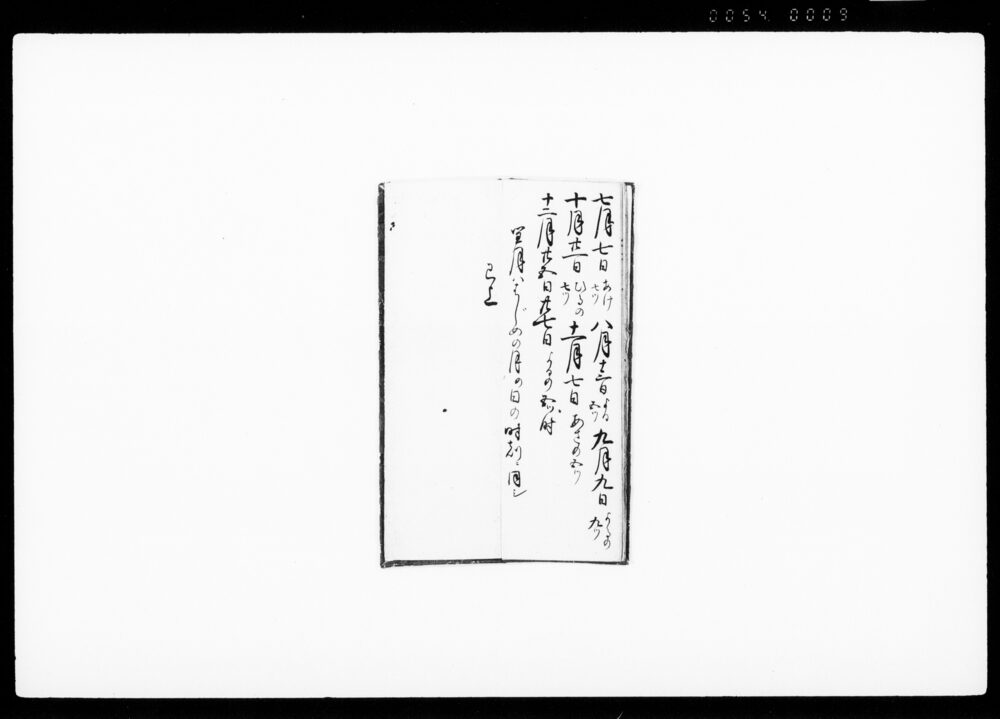 0054 0009
七月七日 あけ七ツ 八月十三日 よる五ツ 九月九日 よるの九ツ
十月廿一日 ひるの七ツ 十一月七日 あさの五ツ
十二月廿五日廿七日 よるの五ツ時
閏月ハはじめの月の日の時刻ニ同シ
已上